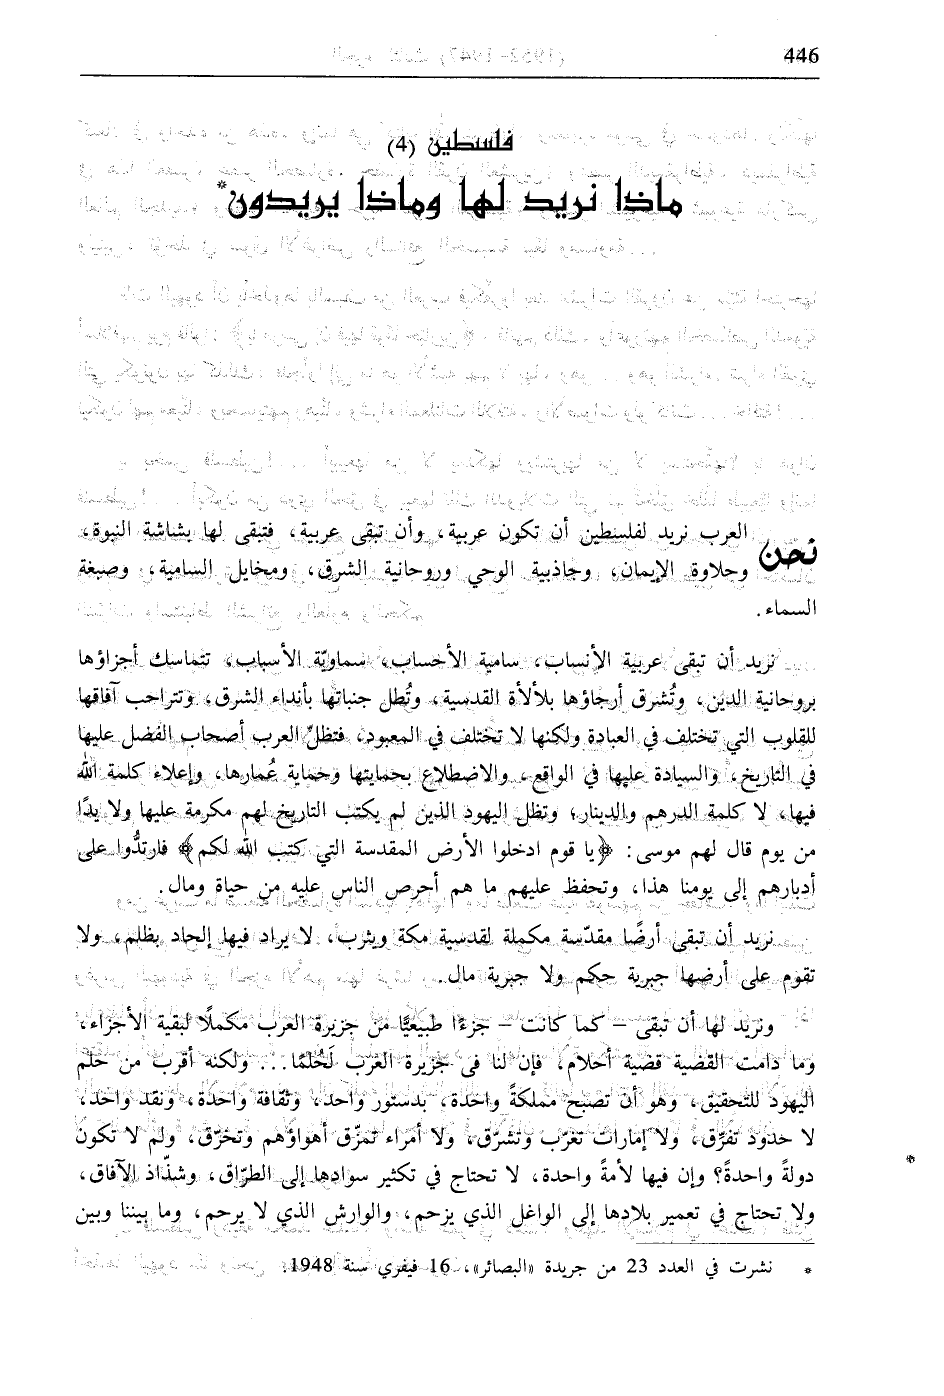 446
فلسطين (4)
ماذا نريد لها وماذا يريدون*
نحن العرب نريد لفلسطين أن تكون عربية، وأن تبقى عربية، فتبقى لها بشاشة النبوة،
وحلاوة الإيمان، وجاذبية الوحي وروحانية الشرق، ومخايل السامية، وصبغة
السماء.
نريد أن تبقى عربية الأنساب، سامية الأحساب، سماويّة الأسباب، تتماسك أجزاؤها
بروحانية الدين، وتُشرق أرجاؤها بلألأة القدسية، وتُطل جنباتها بأنداء الشرق، وتتراحب آفاقها
للقلوب التي تختلف في العبادة ولكنها لا تختلف في المعبود، فتظلّ العرب أصحاب الفضل عليها
في التاريخ، والسيادة عليها في الواقع، والاضطلاع بحمايتها وحماية عُمارها، وإعلاء كلمة الله
فيها، لا كلمة الدرهم والدينار؛ وتظل اليهود الذين لم يكتب التاريخ لهم مكرمة عليها ولا يدًا
من يوم قال لهم موسى: ﴿يا قوم ادخلوا الأرض المقدسة التي كتب الله لكم﴾ فارتدُّوا على
أدبارهم إلى يومنا هذا، وتحفظ عليهم ما هم أحرص الناس عليه من حياة ومال.
نريد أن تبقى أرضًا مقدّسة مكملة لقدسية مكة ويثرب، لا يراد فيها إلحاد بظلم، ولا
تقوم على أرضها جبرية حكم ولا جبرية مال.
ونريد لها أن تبقى – كما كانت – جزءًا طبيعيًّا من جزيرة العرب مكملًا لبقية الأجزاء،
وما دامت القضية قضية أحلام، فإن لنا في جزيرة العرب لَحُلمًا... ولكنه أقرب من حلم
اليهود للتحقيق، وهو أن تصبح مملكةً واحدة، بدستور واحد، وثقافة واحدة، ونقد واحد،
لا حدود تفرِّق، ولا إمارات تغرّب وتشرّق، ولا أمراء تمزّق أهواؤهم وتخرّق، ولم لا تكون
دولةً واحدةً؟ وإن فيها لأمةً واحدة، لا تحتاج في تكثير سوادها إلى الطرّاق، وشذّاذ الآفاق،
ولا تحتاج في تعمير بلادها إلى الواغل الذي يزحم، والوارش الذي لا يرحم، وما بيننا وبين
* نشرت في العدد 23 من جريدة «البصائر»، 16 فيفري سنة 1948.